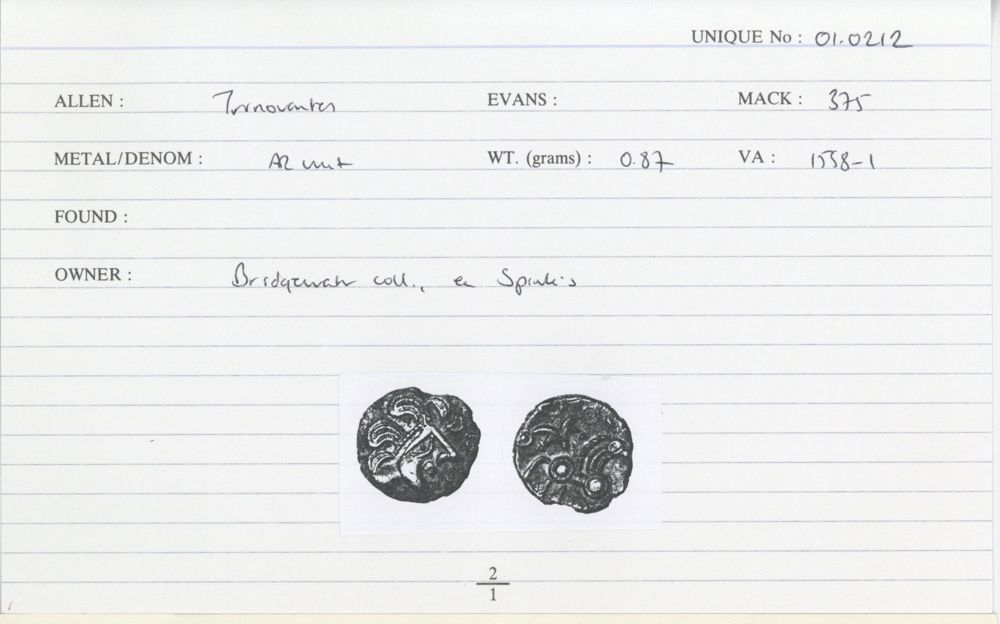 UNIQUE No : 01.0212
ALLEN : Trinovantes EVANS : MACK : 375
METAL/DENOM : AR unit WT. (grams) : 0.87 VA : 1558-1
FOUND :
OWNER : Bridgewater coll., ex Spink's
2
1